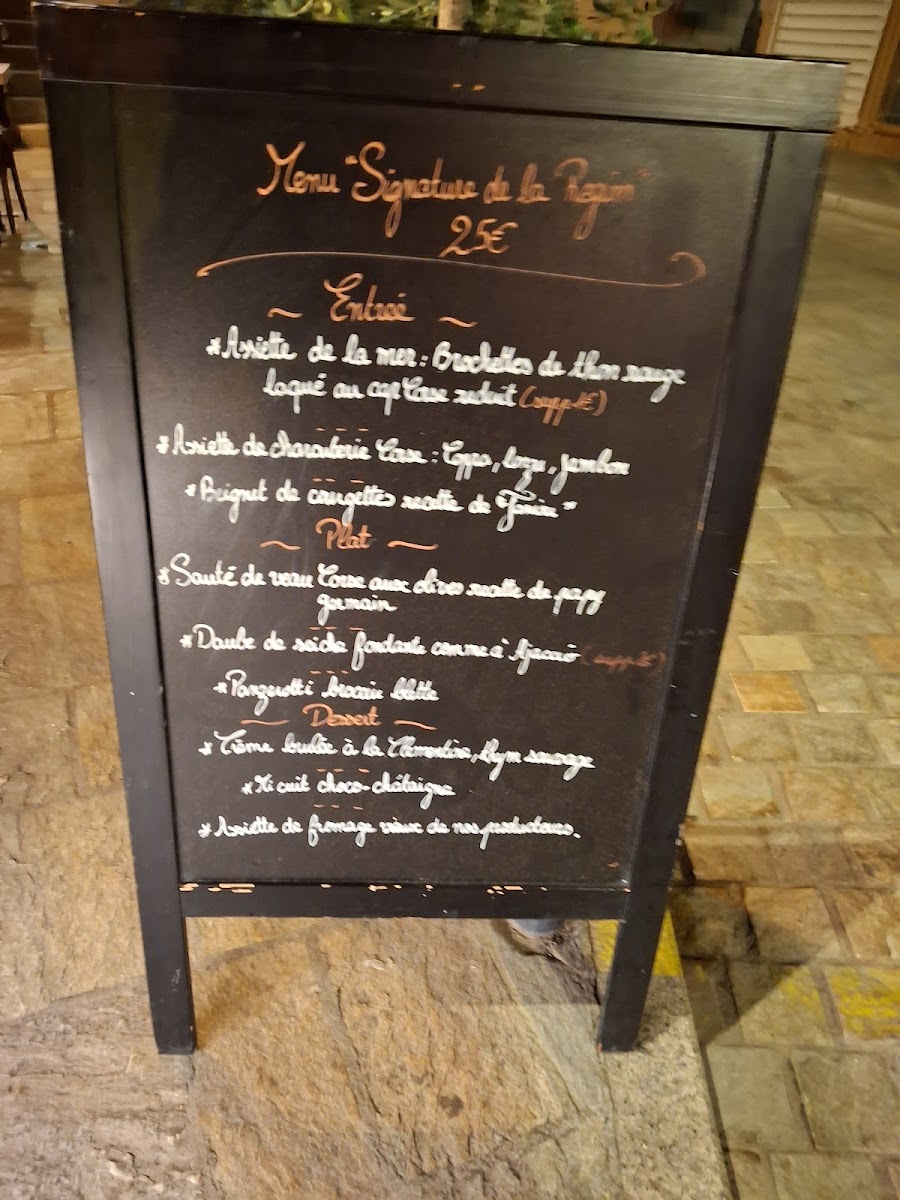 Menu "Signature de la Region"
25€
~ Entreé ~
*Assiette de la mer: Brochettes de thon rouge
laqué au cap Corse reduit (supp 4€)
*Assiette de charcuterie Corse: Coppa, lonzu, jambon
*Beignet de courgettes recette de
~ Plat ~
*Sauté de veau Corse aux olives recette de papy
germain
*Daube de seiche fondante comme à Ajaccio (supp
*Panzerotti brocciu blette
~ Dessert ~
*Crème brulée à la Clémentine, thym sauvage
*Mi cuit choco-châtaigne
*Assiette de fromage vieux de nos producteurs.